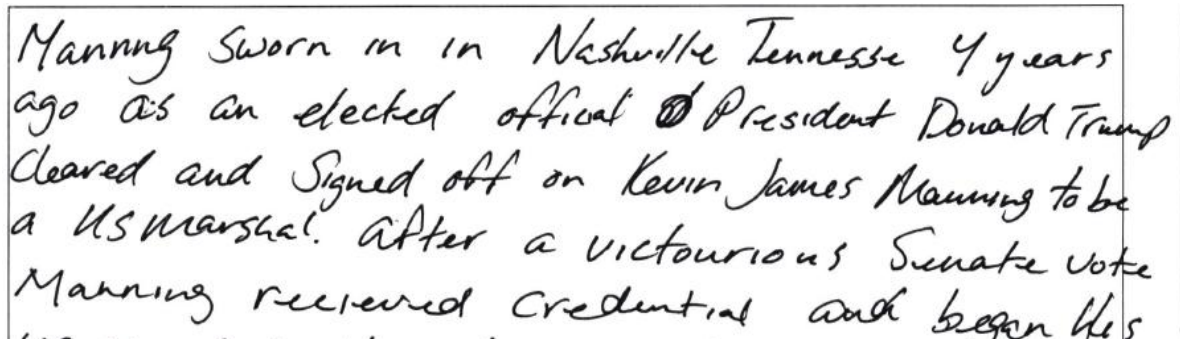 Manning Sworn in in Nashville Tennesse 4 years
ago as an elected offical President Donald Trump
Cleared and Signed off on Kevin James Manning to be
a US Marshal. After a victourious Senate vote
Manning recieved Credential and began His